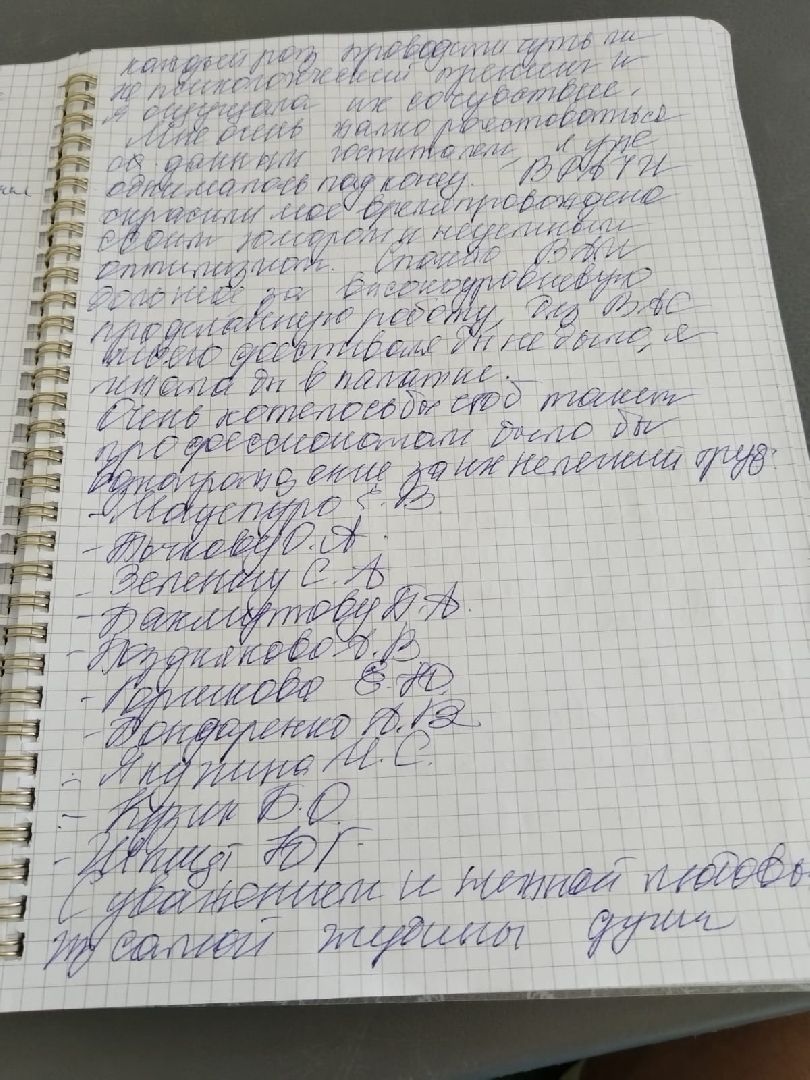 каждый раз проводили чуть ли
не психологический тренинг и
я ощущала их сочувствие.
Мне очень жалко расставаться
с данным госпиталем, я уже
обнималась под конец. - ВРАЧИ
скрасили мое времяпровождение
своим юмором и
оптимизмом. Спасибо ВАМ
большое за высокоуровневую
проделанную работу, без ВАС
моего бы не было, я
бы в палатке.
Очень хотелось бы чтоб таким
профессионалам было бы
за их нелегкий труд:
- Е.В.
- Тычкову О.А.
- Зеленину С.А
- Бахмутову Т.А.
- Позднякова А.В
- Горшкова Е.Ю.
- Бондаренко А.В
- Якунина М.С.
- Кузин Б.О.
- Шмидт Ю.Г.
С уважением и нежной любовью
из самой глубины души